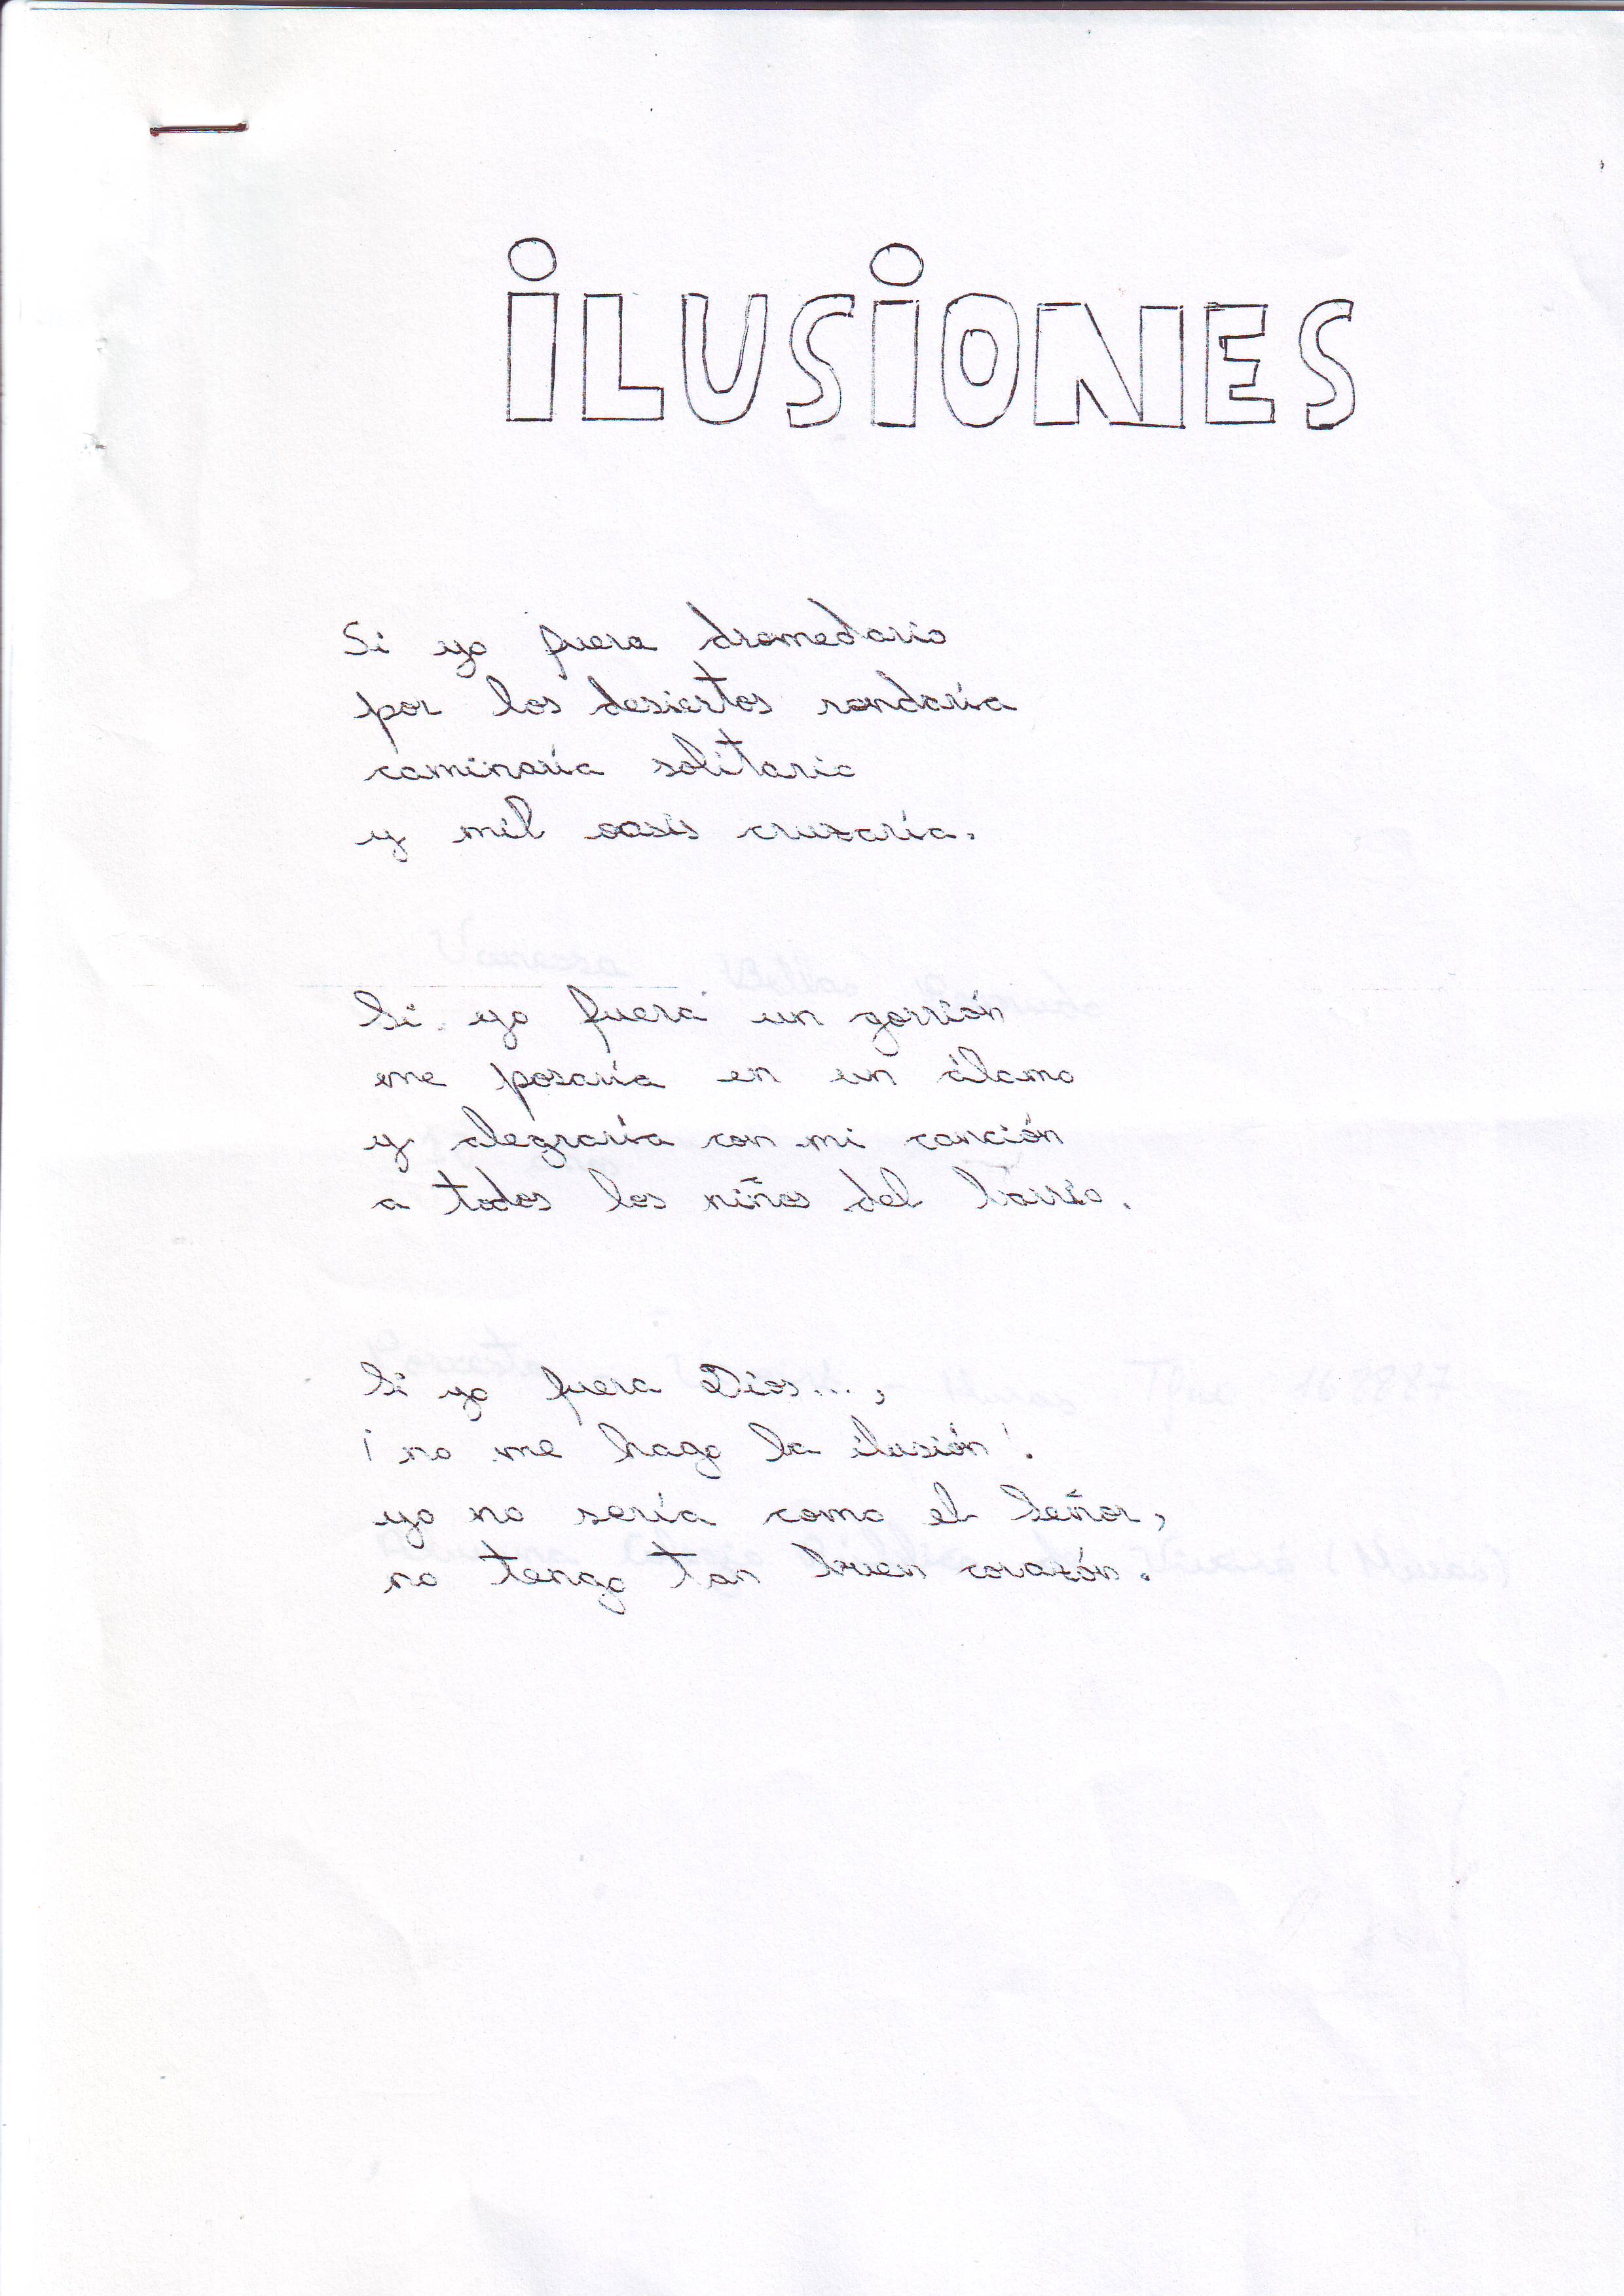 iLUSiONES
Si yo fuera dromedario
por los desiertos rondaría
caminaría solitario
y mil oasis cruzaría.
Si yo fuera un gorrión
me posaría en un álamo
y alegraría con mi canción
a todos los niños del barrio.
Si yo fuera Dios...,
¡no me hago la ilusión!.
yo no sería como el Señor,
no tengo tan buen corazón.